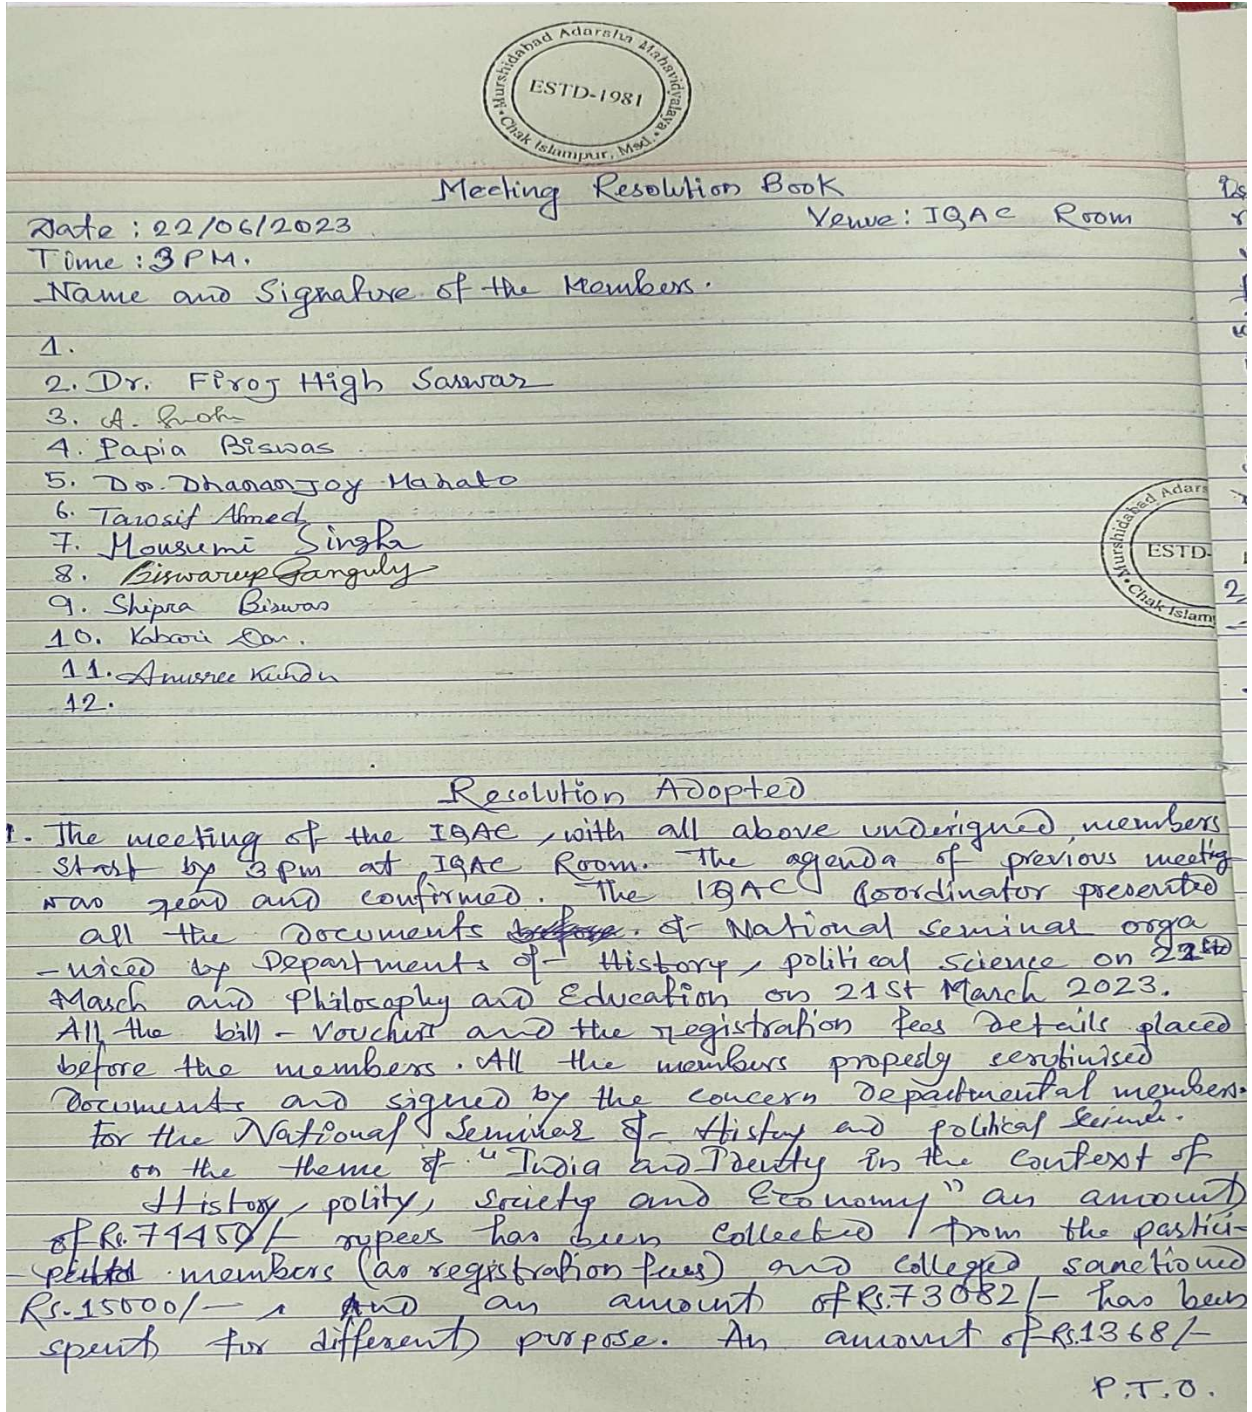 Murshidabad Adarsha Mahavidyalaya
ESTD-1981
Chak Islampur, Msd.
Meeting Resolution Book
Date : 22/06/2023
Venue : IQAC Room
Time : 3 PM.
Name and Signature of the Members.
1.
2. Dr. Firoj High Sarwar
3. A.
4. Papia Biswas
5. Dr. Dhananjoy Mahato
6. Tawsif Ahmed
7. Mousumi Singha
8. Biswarup Ganguly
9. Shipra Biswas
10. Kabari
11. Anusree Kundu
12.
Murshidabad Adars
ESTD-
Chak Islam
Resolution Adopted
1. The meeting of the IQAC, with all above underigned members
start by 3 pm at IQAC Room. The agenda of previous meetig
was read and confirmed. The IQAC Coordinator presented
all the documents of National seminar orga
-niced by Departments of History, political science on
March and Philosophy and Education on 21st March 2023.
All the bill - Vouchers and the registration fees details placed
before the members. All the members properly scrutinised
documents and signed by the concern departmental members.
for the National Seminar of History and political Science.
on the theme of "India and Identity in the context of
History, polity, Society and Economy" an amount
of Rs. 74450/- rupees has been collected from the partici-
members (as registration fees) and colleged sanctioned
Rs. 15000/- And an amount of Rs. 73082/- has been
spent for different purpose. An amount of Rs. 1368/-
P.T.O.